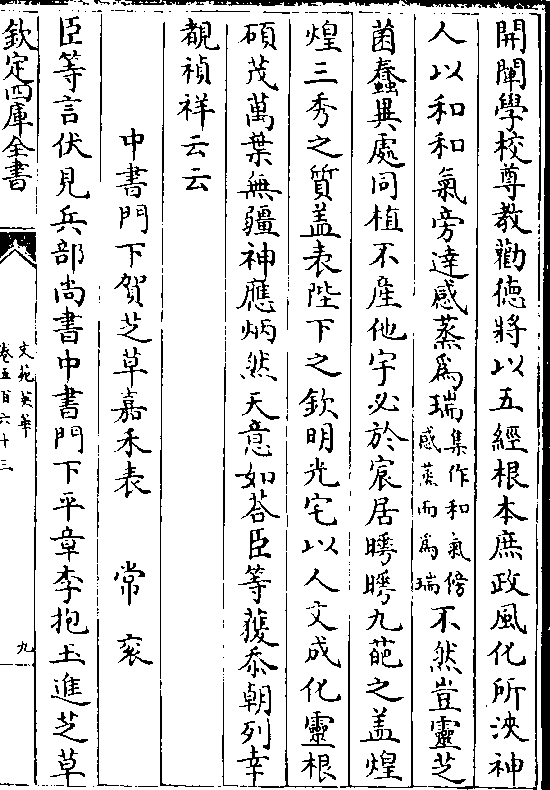 開闡學校尊教勸德將以五經根本庶政風化所浹神
人以和和氣旁達感蒸爲瑞集作和氣傍感蒸而爲瑞不然豈靈芝
菌蠢異處同植不産他宇必於宸居曄曄九葩之盖煌
煌三秀之質盖表陛下之欽明光宅以人文成化靈根
碩茂萬葉無疆神應炳然天意如荅臣等獲忝朝列幸
覩禎祥云云
中書門下賀芝草嘉禾表 常衮
臣等言伏見兵部尚書中書門下平章李抱玉進芝草
欽定四庫全書
文苑英華
卷五百六十三
九